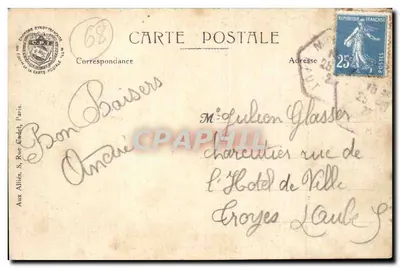 68
CARTE POSTALE
Correspondance
Adresse
REPUBLIQUE FRANÇAISE
25
POSTES
Bon Baisers
Aux Alliés, 8, Rue Cadet, Paris.
Mr Julien Glasser
Charcutier rue de
l'Hotel de Ville
Troyes L'aube
CPArama.com